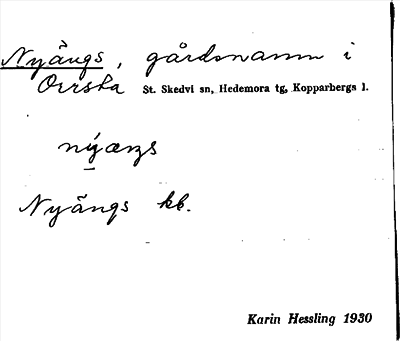 Nyängs, gårdsnamn i
Orrsta St. Skedvi sn, Hedemora tg, Kopparbergs l.
nýæŋs
Nyängs kb.
Karin Hessling 1930